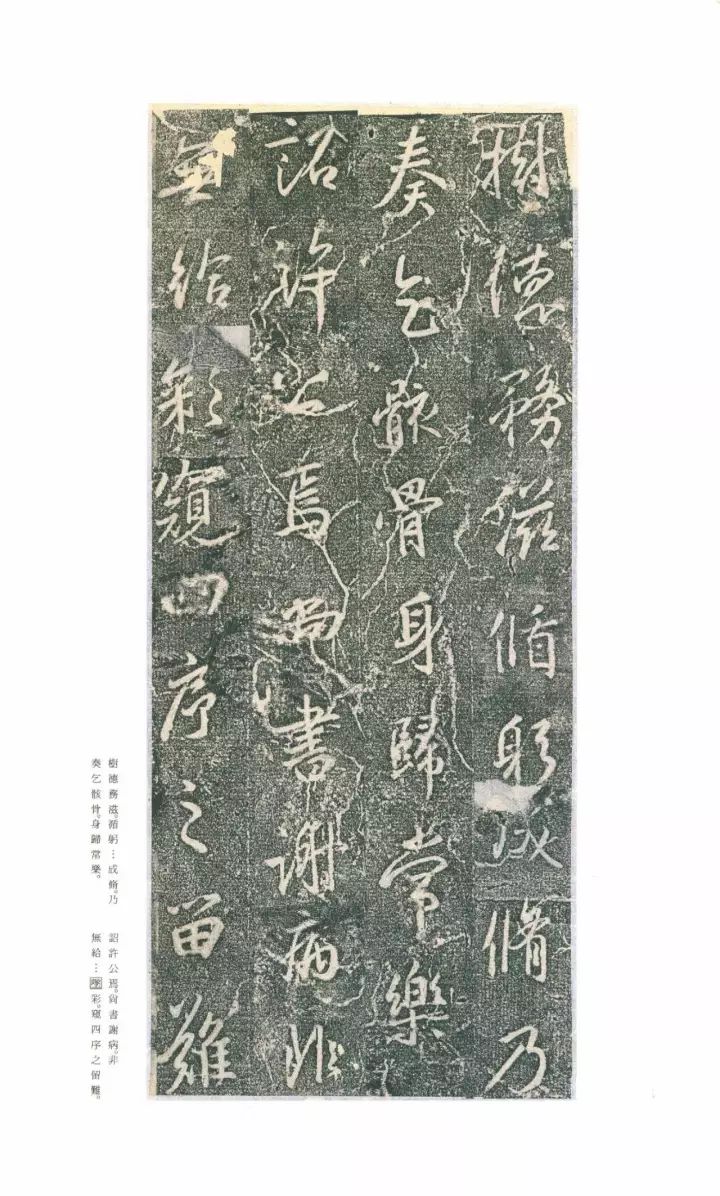 樹德務滋循躬成脩乃
奏乞骸骨身歸常樂
詔許公焉尚書謝病非
無給彩窺四序之留難
樹德務滋。循躬…成脩。乃
奏乞骸骨。身歸常樂。
詔許公焉。尚書謝病。非
無給…彩。窺四序之留難。